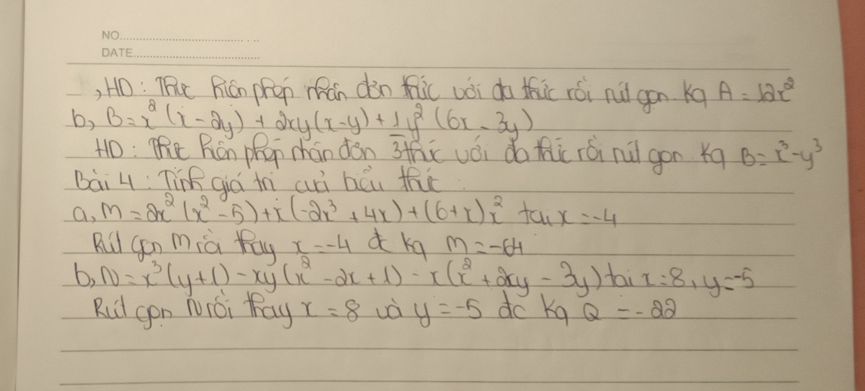 NO.
DATE
, HD: Thực hiện phép nhân đơn thức với đa thức rồi rút gọn kq A = 12x²
b, B = x²(x - 2y) + 2xy(x - y) + 1/3 y²(6x - 3y)
HD: Thực hiện phép nhân đơn thức với đa thức rồi rút gọn kq B = x³ - y³
Bài 4: Tính giá trị của biểu thức:
a, M = 2x²(x² - 5) + x(-2x³ + 4x) + (6 + x)x² tại x = -4
Rút gọn M rồi thay x = -4 đc kq M = -64
b, N = x³(y + 1) - xy(x² - 2x + 1) - x(x² + 2xy - 3y) tại x = 8, y = -5
Rút gọn N rồi thay x = 8 và y = -5 đc kq Q = -22